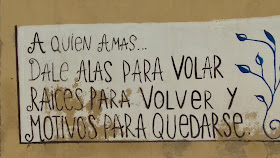 A QUIEN AMAS...
DALE ALAS PARA VOLAR
RAICES PARA VOLVER Y
MOTIVOS PARA QUEDARSE.